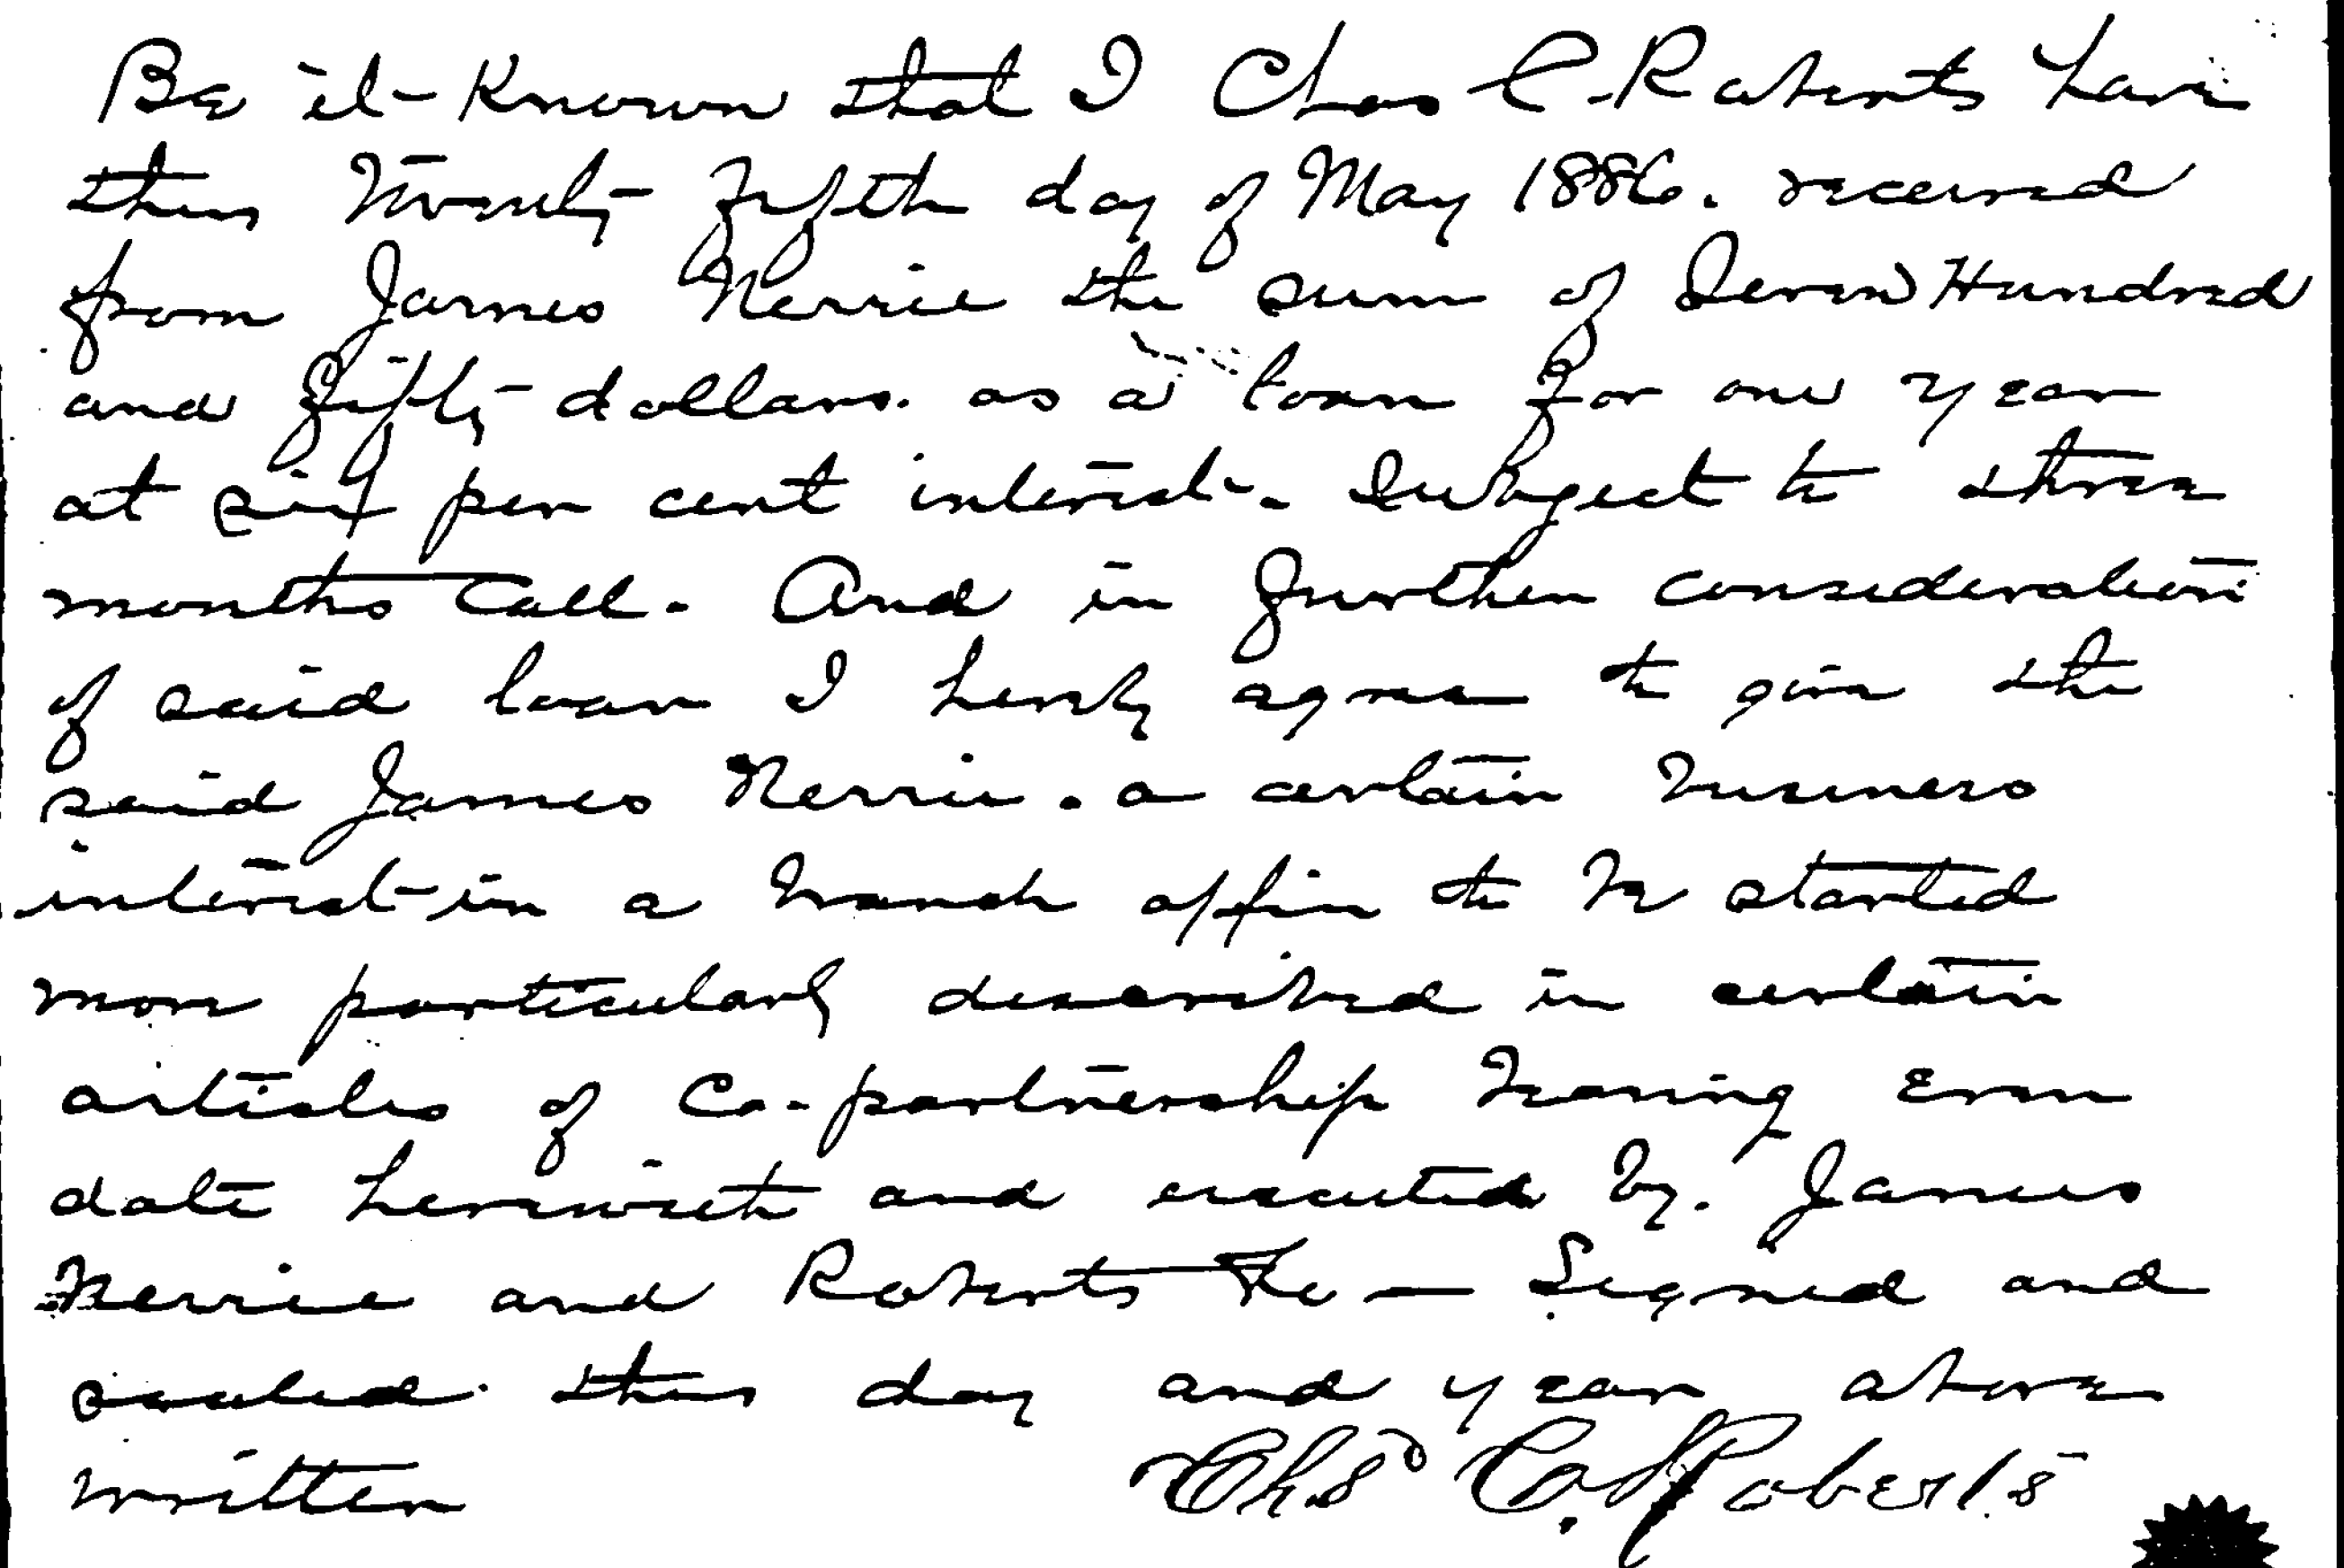 Be it Known that I Chas C. Roberts have
this Twenty Fifth day of May 1886. received
from James Nerrie the sum of Seven Hundred
and Fifty dollars. as a loan For one year
at six per cent interest. Subject to three
months Call. And in further consideration
of said loan I hereby agree to give the
said James Nerrie. a certain business
interest in a branch office to be started
more particularly described in certain
articles of Co-partnership bearing even
date herewith and executed by. James
Nerrie and Roberts & Co — Signed and
sealed this day and year above
written Chas C. Roberts